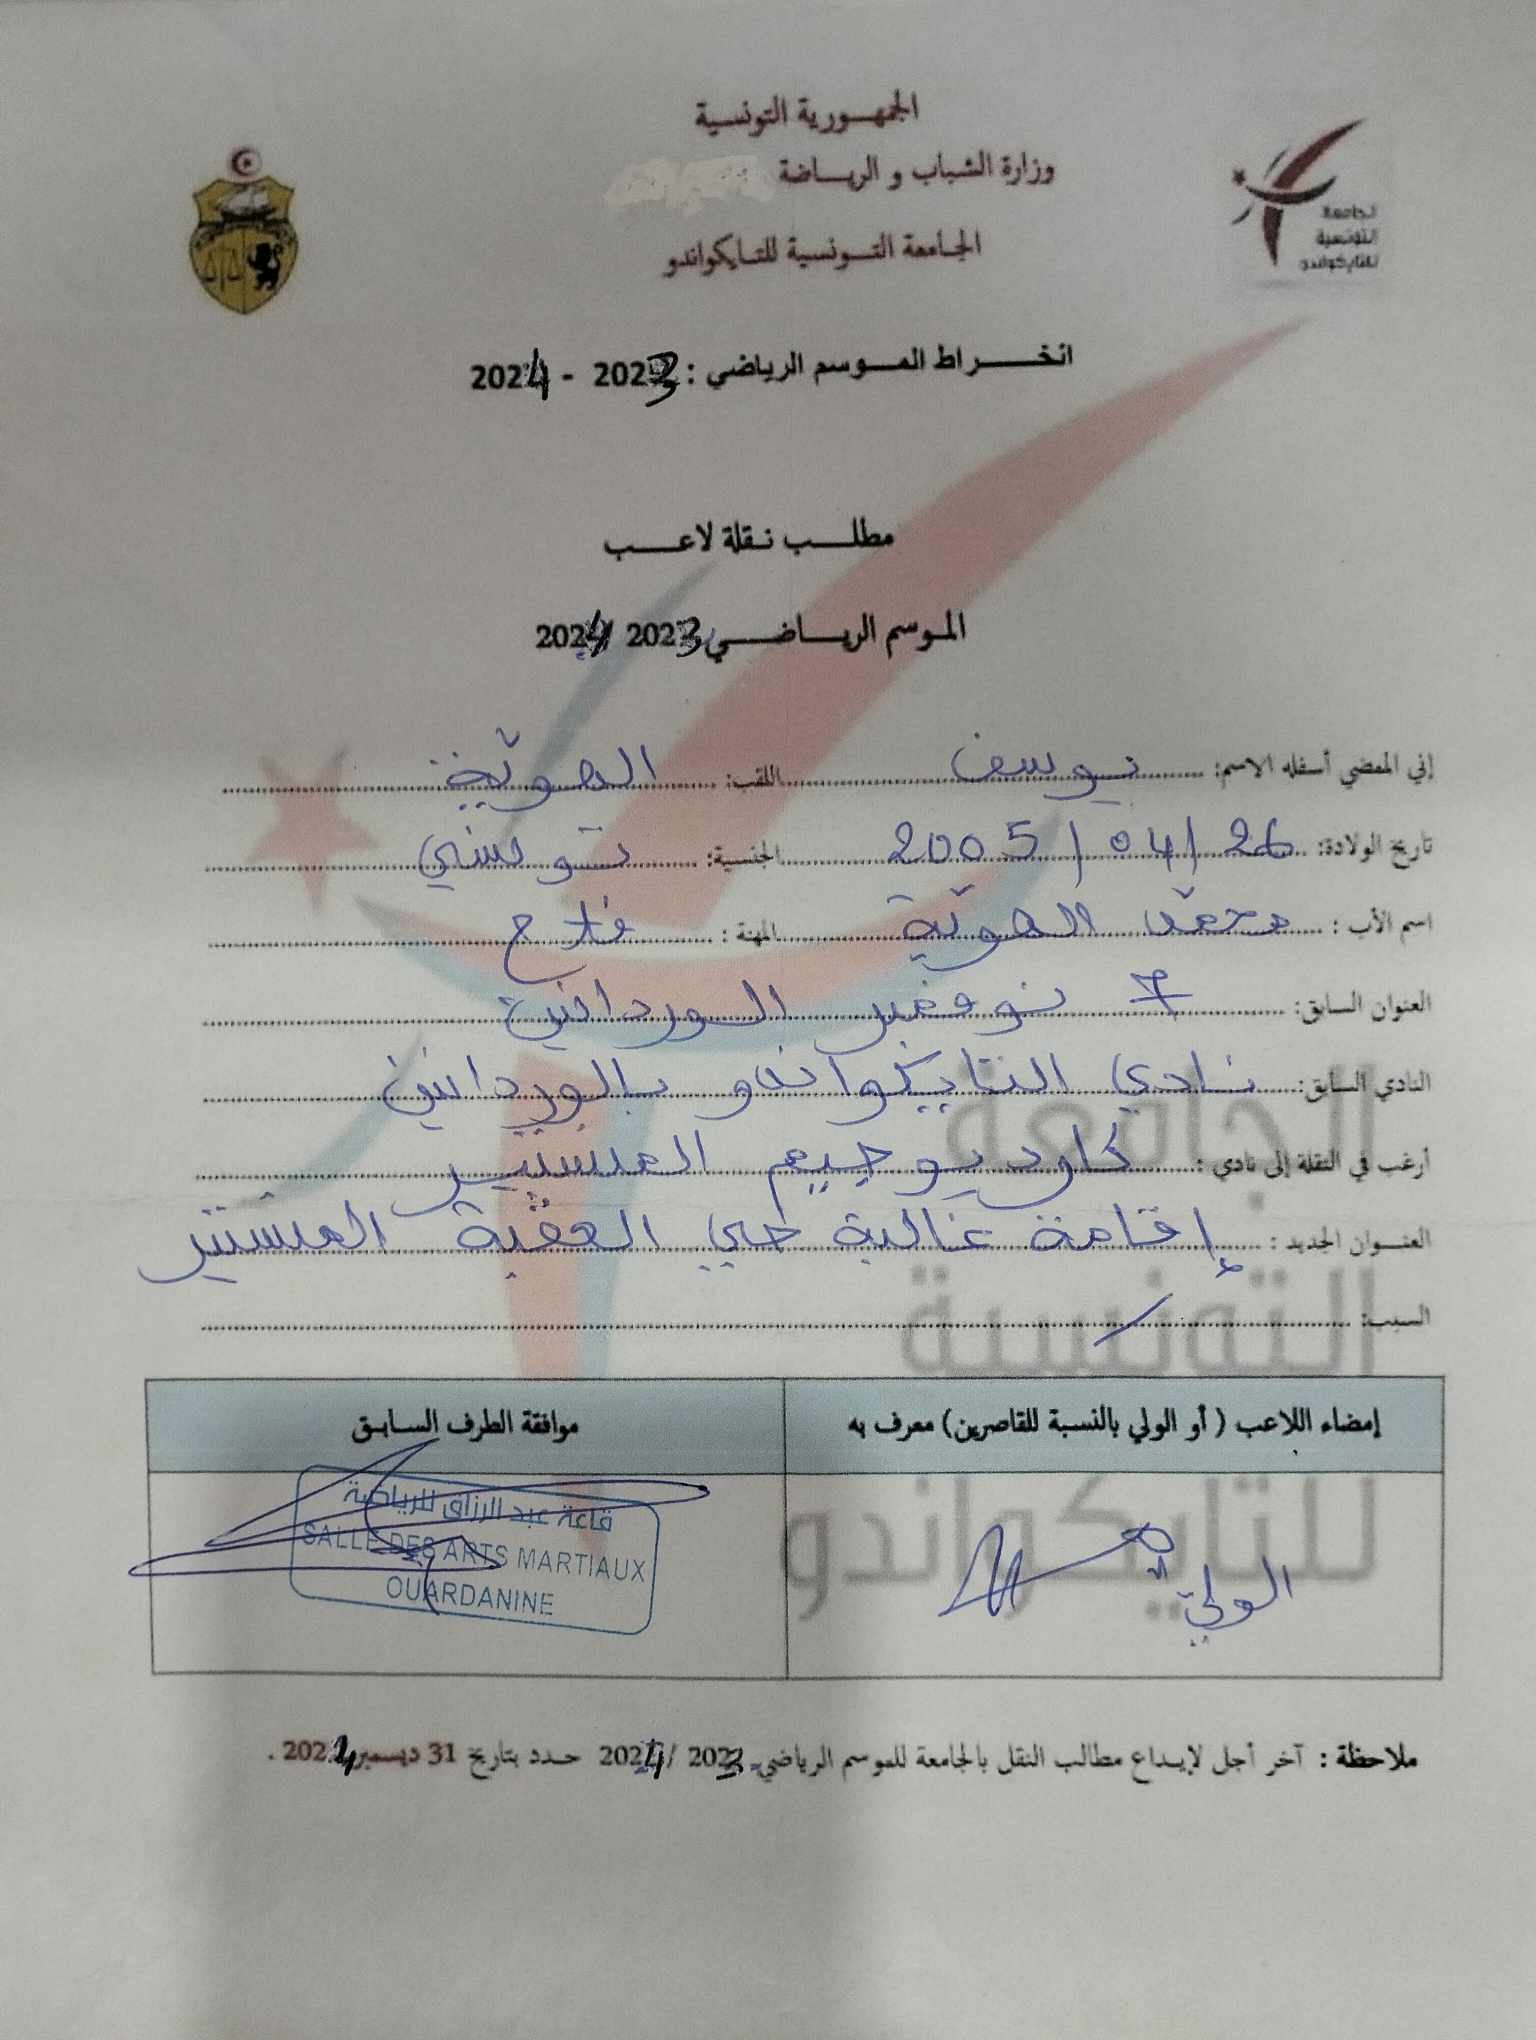 الجمهورية التونسية
وزارة الشباب و الرياضة
الجامعة التونسية للتايكواندو
الجامعة
التونسية
للتايكواندو
انخراط الموسم الرياضي : 2023 - 2024
مطلب نقلة لاعب
الموسم الرياضي 2023 / 2024
إني الممضي أسفله الاسم: يوسف اللقب:
تاريخ الولادة: 26 / 04 / 2005 الجنسية: تونسي
اسم الأب : محمد المهنة : فلاح
العنوان السابق: 7 نوفمبر الوردانين
النادي السابق: نادي التايكواندو بالوردانين
أرغب في النقلة إلى نادي : كاوديو جيم المنستير
العنوان الجديد : إقامة غالية حي العقبة المنستير
السبب: /
إمضاء اللاعب ( أو الولي بالنسبة للقاصرين) معرف به
موافقة الطرف السابق
الولي
قاعة عبد الرزاق للرياضة
SALLE DES ARTS MARTIAUX
OUARDANINE
ملاحظة : آخر أجل لإيداع مطالب النقل بالجامعة للموسم الرياضي 2023 / 2024 حدد بتاريخ 31 ديسمبر 2024 .
الجامعة
التونسية
للتايكواندو